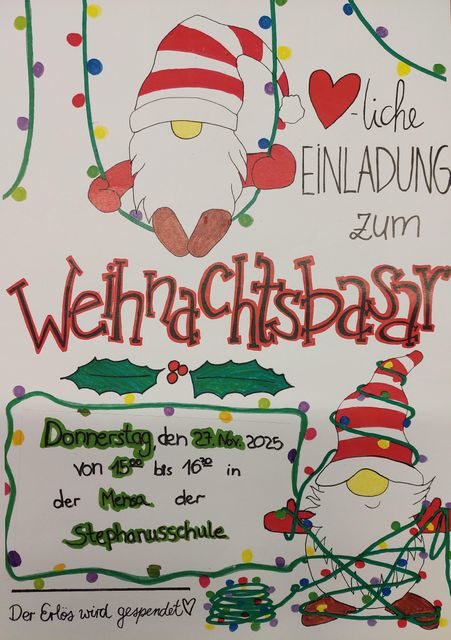 ❤-liche
EINLADUNG
zum
Weihnachtsbasar
Donnerstag den 27. Nov. 2025
von 15⁰⁰ bis 16³⁰ in
der Mensa der
Stephanusschule
Der Erlös wird gespendet♡